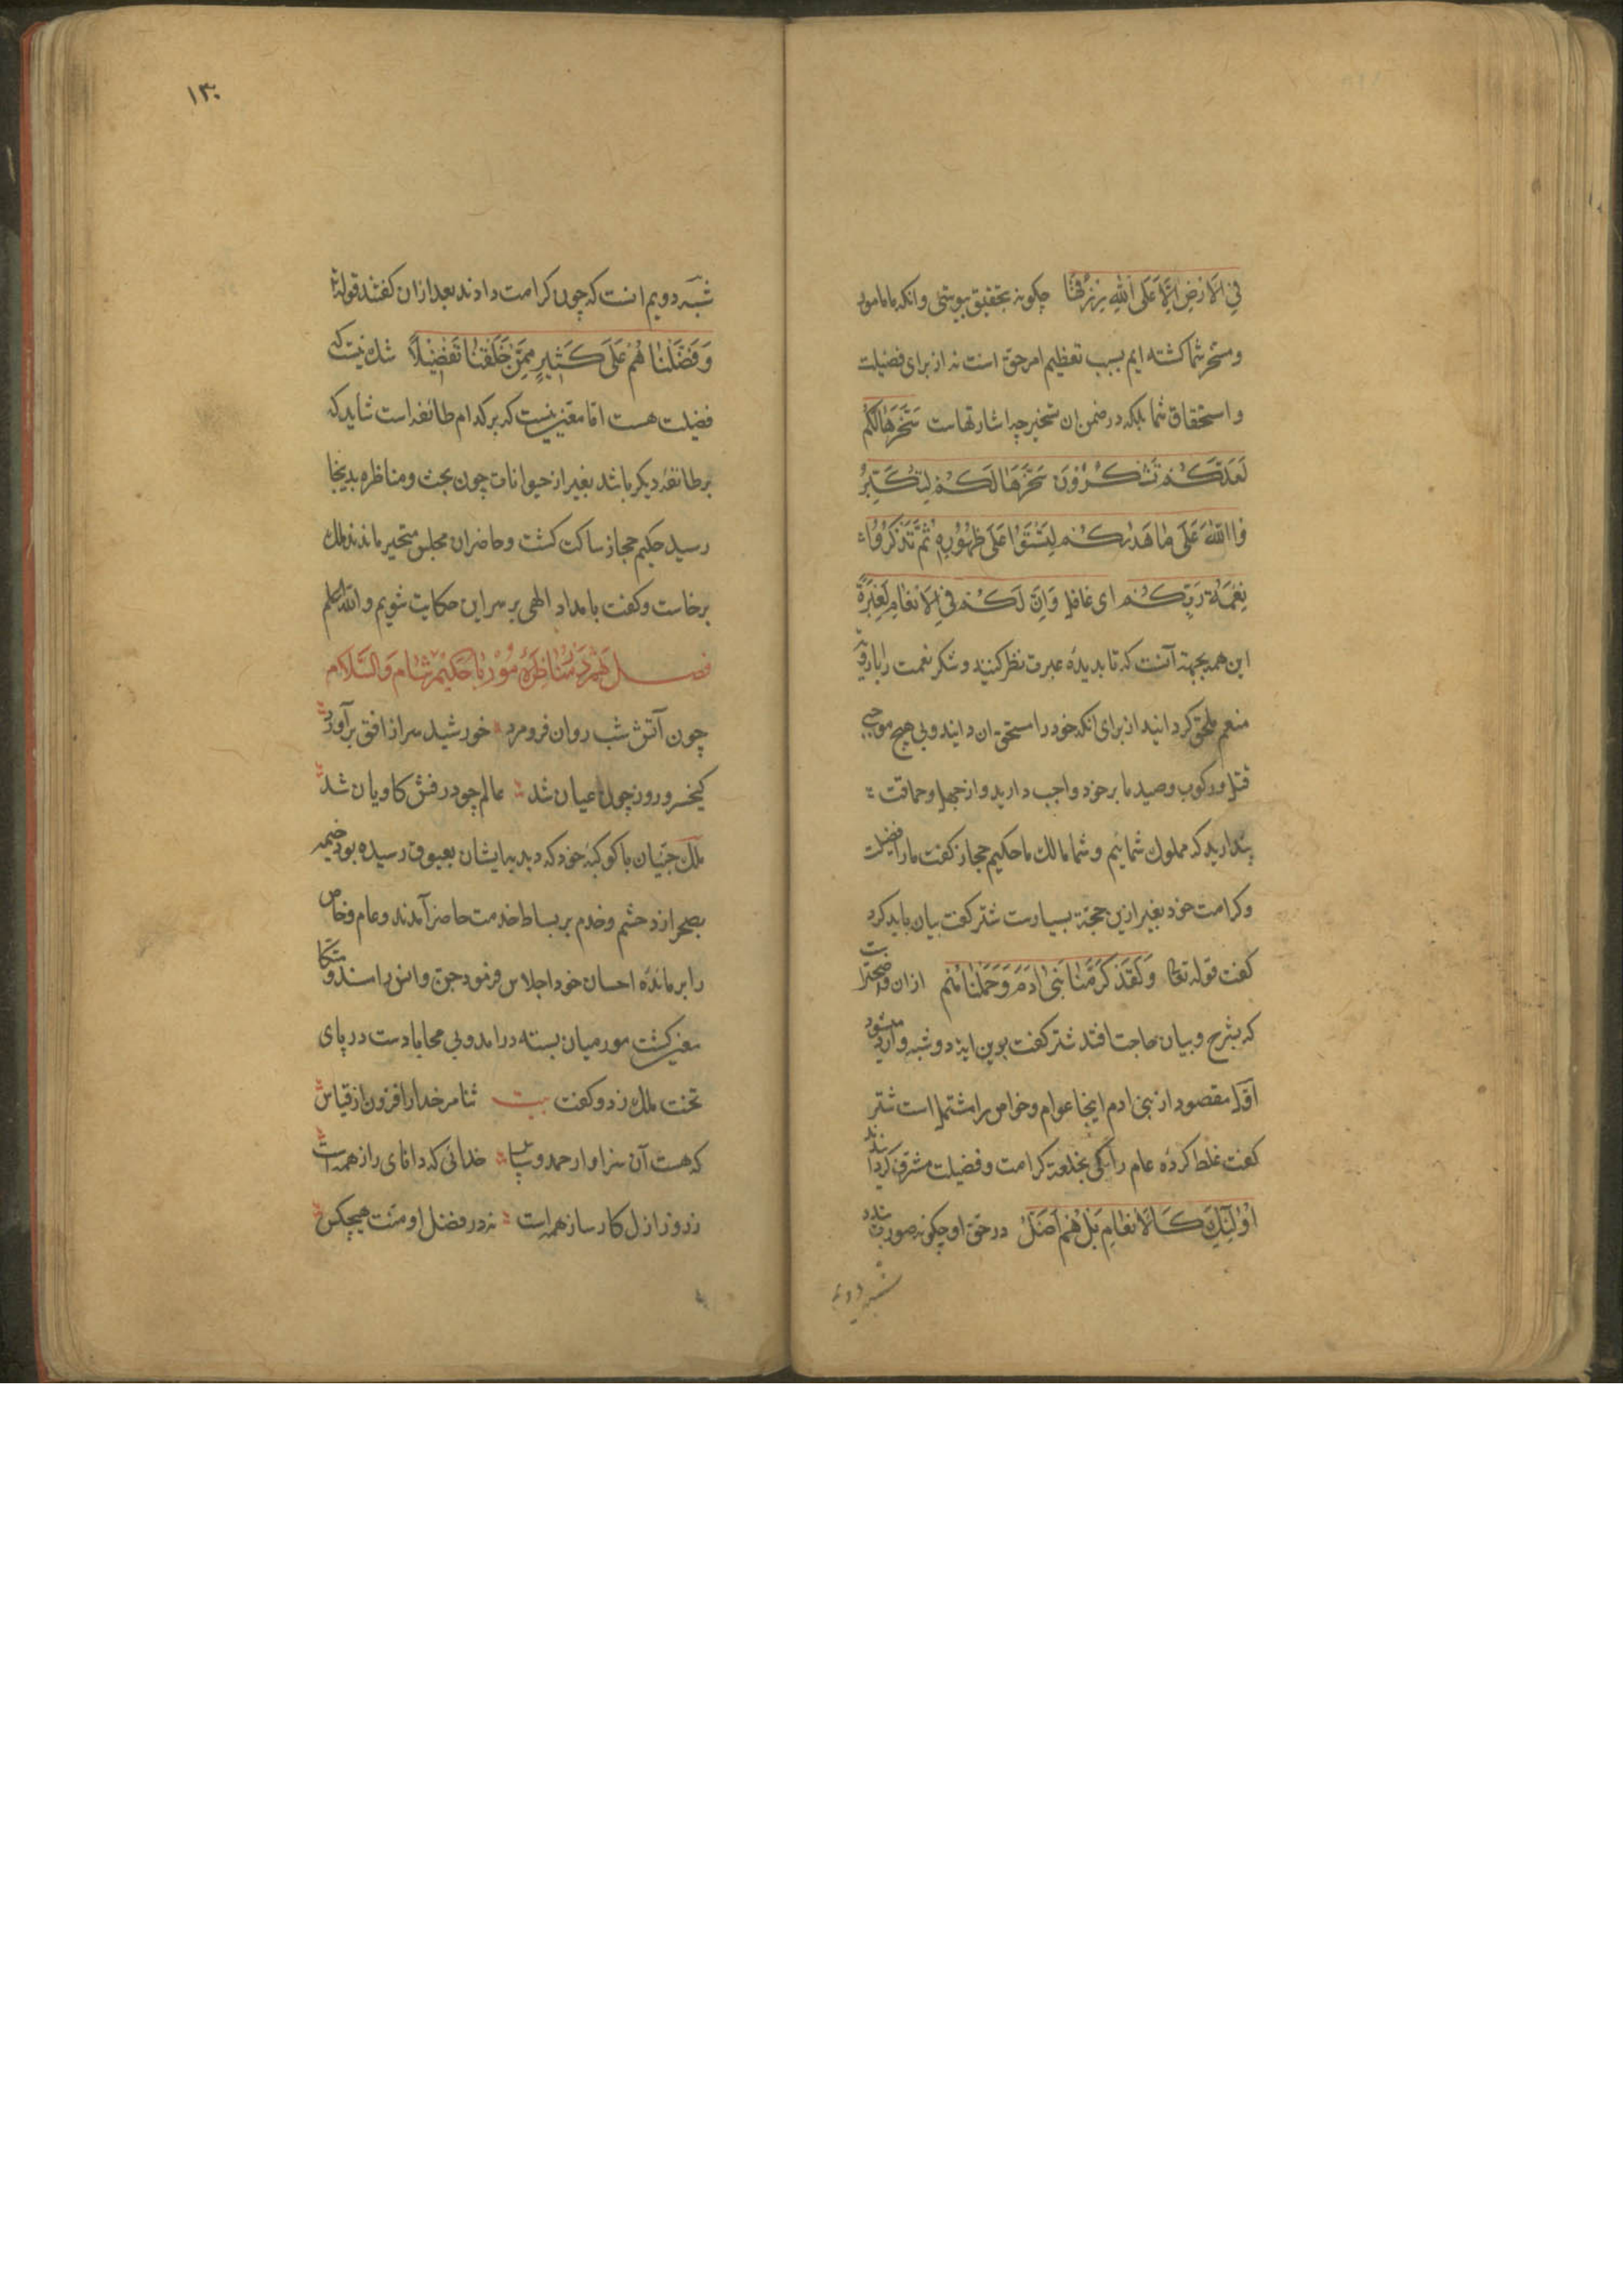 فِي الْاَرْضِ اِلَّا عَلَى اللّٰهِ رِزْقُهَا چکونه بتحقیق پیوستی وانکه ما مامور
ومسخر شما کشته ایم بسبب تعظیم امر حق است نه از برای فضیلت
واستحقاق شما بلکه در ضمن ان تسخیر چه اشارتهاست سَخَّرَهَا لَكُمْ
لَعَلَّكُمْ تَشْكُرُوْنَ سَخَّرَهَا لَكُمْ لِتُكَبِّرُ
وْا اللّٰهَ عَلٰى مَا هَدٰىكُمْ لِتَسْتَوٗا عَلٰى ظُهُوْرِهٖ ثُمَّ تَذْكُرُوْا
نِعْمَةَ رَبِّكُمْ ای غافل وَاِنَّ لَكُمْ فِي الْاَنْعَامِ لَعِبْرَةً
این همه بجهة آنست که تا بدیدهٔ عبرت نظر کنید وشکر نعمت را با
منعم ملحق کردانید از برای انکه خود را مستحق ان دانید وبی هیچ موجبی
قتل ورکوب وصید ما بر خود واجب دارید واز جهل وحماقت
پندارید که مملوك شمائیم وشما مالك ما حکیم حجاز کفت ما را فضیلت
وکرامت خود بغیر ازین حجة بسیارست شتر کفت بیان باید کرد
کفت قوله تعالی وَلَقَدْ كَرَّمْنَا بَنِیْ اٰدَمَ وَحَمَلْنَاهُمْ ازان واضحترست
که بشرح وبیان حاجت افتد شتر کفت برین ایة دو شبه وارد میشود
اوّل مقصود از بنی ادم اینجا عوام وخواص را مشتمل است شتر
کفت غلط کردهٔ عام را کی بخلعت کرامت وفضیلت مشرف کردانند
اُوْلٰٓئِكَ كَالْاَنْعَامِ بَلْ هُمْ اَضَلُّ در حق او چکونه صورت بندد
شبه دویم
۱۳۰
شبهٔ دویم انست که چون کرامت دادند بعد ازان کفتند قوله تع
وَفَضَّلْنَاهُمْ عَلٰى كَثِيْرٍ مِمَّنْ خَلَقْنَا تَفْضِيْلًا شك نیست که
فضیلت هست اما مقرر نیست که بر کدام طائفه است شاید که
بر طائفهٔ دیکر باشد بغیر از حیوانات چون بحث ومناظره بدینجا
رسید حکیم حجاز ساکت کشت وحاضران مجلس متحیر ماندند ملك
برخاست وکفت بامداد الهی بر سر این حکایت شویم والله اعلم
فصل نهم در مناظرهٔ مور با حکیم شام والسلام
چون آتش شب روان فرو مرد خورشید سر از افق برآورد
کیخسرو روز چون عیان شد عالم چو درفش کاویان شد
ملك جنیان با کوکبهٔ خود که دبدبهٔ ایشان بعیوق رسیده بود خیمه
بصحرا زد حشم وخدم بر بساط خدمت حاضر آمدند وعام وخاص
را بر مائدهٔ احسان خود اجلاس فرمود جن وانس را مسند ومتکا
معین کشت مور میان بسته درامد وبی محابا دست در پای
تخت ملك زد وکفت بیت ثنا مر خدا را فزون از قیاس
که هست آن سزاوار حمد وسپاس خدائی که دانای راز همه است
ز روز ازل کارساز همه است نه در فضل او منت هیچکس